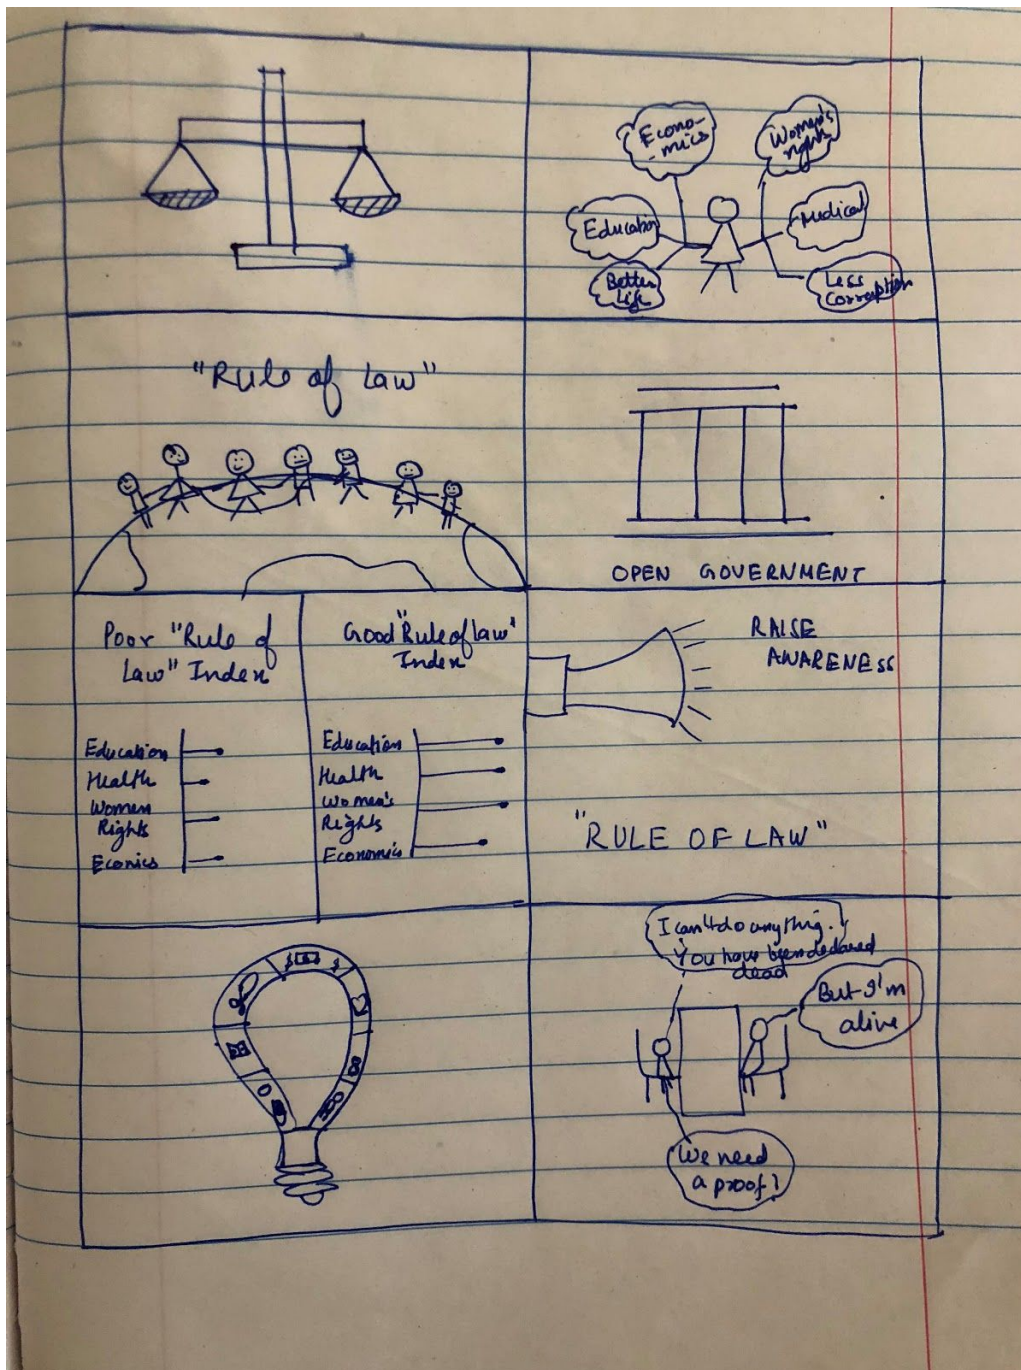 Econo-
-mics
Women's
rights
Education
Medical
Better
Life
Less
corruption
"Rule of Law"
OPEN GOVERNMENT
Poor "Rule of
Law" Index
Education
Health
Women
Rights
Econics
Good "Rule of law"
Index
Education
Health
Women's
Rights
Economics
RAISE
AWARENESS
"RULE OF LAW"
I can't do anything.
You have been declared
dead
But I'm
alive
We need
a proof!